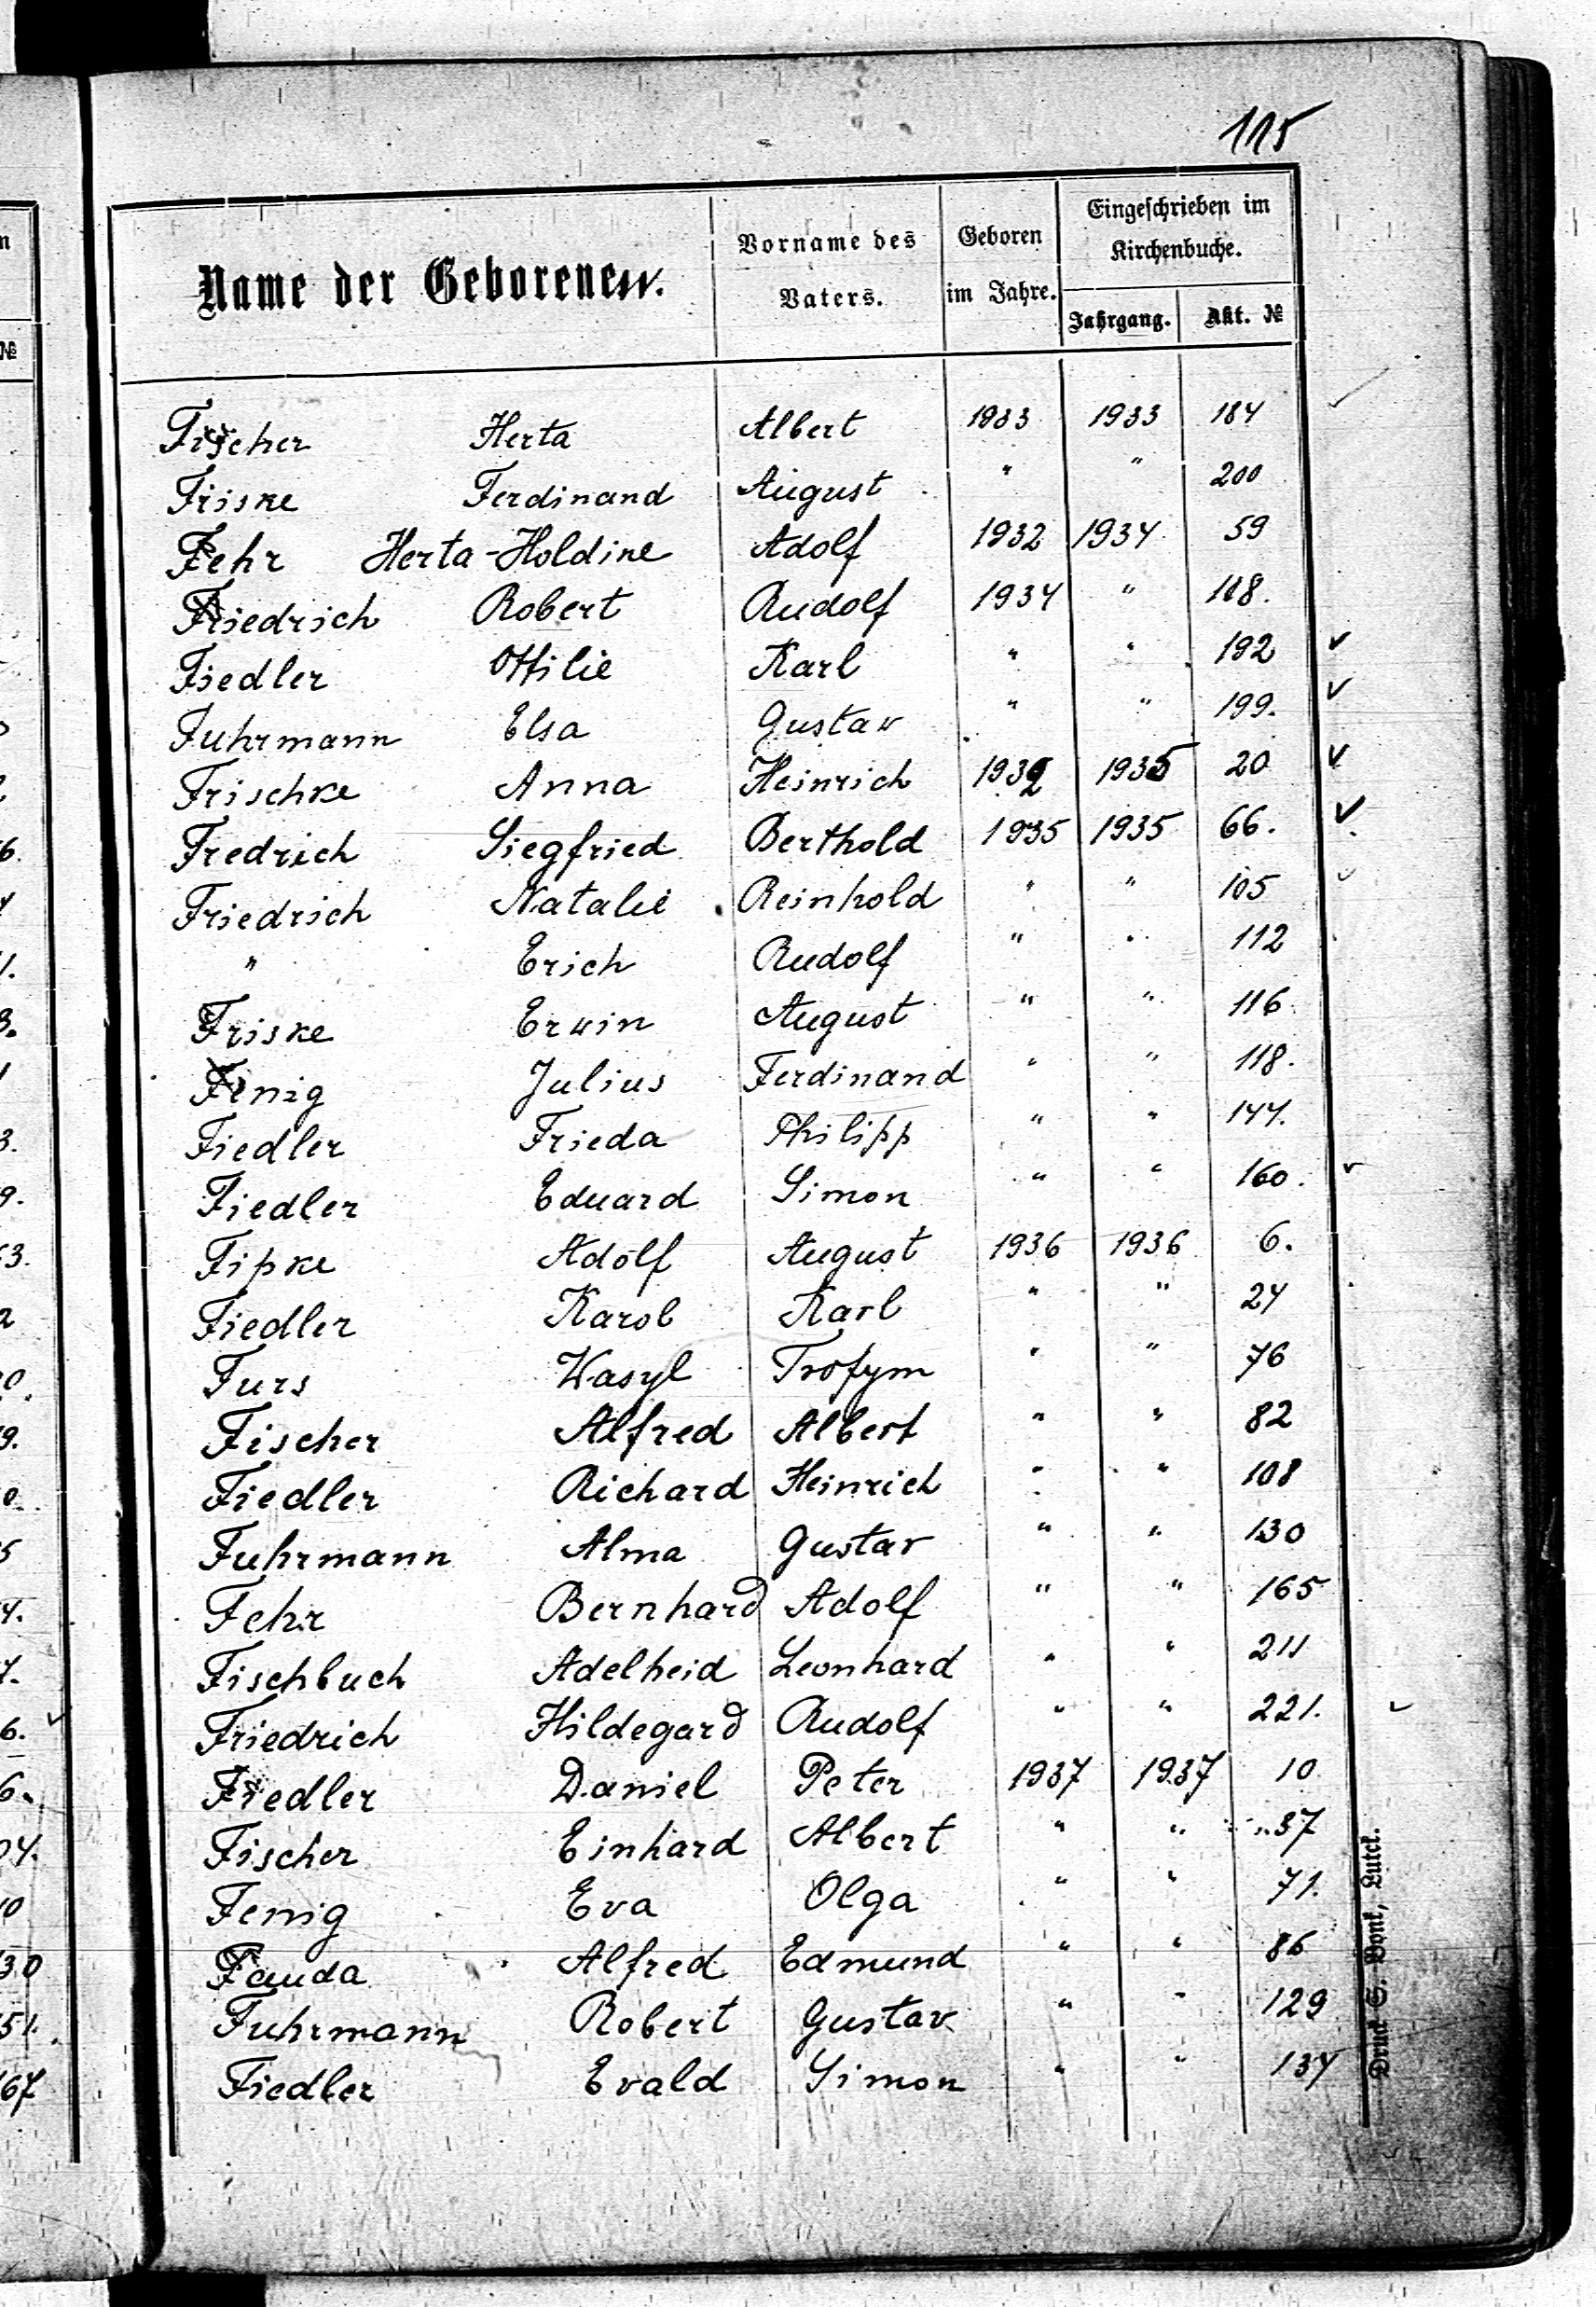 115
Name der Geborenen.
Vorname des Vaters.
Geboren im Jahre.
Eingeschrieben im Kirchenbuche.
Jahrgang. Akt. №
Fischer Herta Albert 1933 1933 184
Friske Ferdinand August " " 200
Fehr Herta-Holdine Adolf 1932 1934 59
Friedrich Robert Rudolf 1934 " 118.
Fiedler Ottilie Karl " " 192 ✓
Fuhrmann Elsa Gustav " " 199. ✓
Frischke Anna Heinrich 1932 1935 20 ✓
Fredrich Siegfried Berthold 1935 1935 66. ✓
Friedrich Natalie Reinhold " " 105 ✓
" Erich Rudolf " " 112
Friske Erwin August " " 116
Fenig Julius Ferdinand " " 118.
Fiedler Frieda Philipp " " 144.
Fiedler Eduard Simon " " 160. ✓
Fipke Adolf August 1936 1936 6.
Fiedler Karol Karl " " 24
Furs Wasyl Trofym " " 76
Fischer Alfred Albert " " 82
Fiedler Richard Heinrich " " 108
Fuhrmann Alma Gustav " " 130
Fehr Bernhard Adolf " " 165
Fischbuch Adelheid Leonhard " " 211
Friedrich Hildegard Rudolf " " 221. ✓
Fiedler Daniel Peter 1937 1937 10
Fischer Einhard Albert " " 37
Fenig Eva Olga " " 71.
Fauda Alfred Edmund " " 86
Fuhrmann Robert Gustav " " 129
Fiedler Evald Simon " " 134
Druck S. Bonk, Lutck.